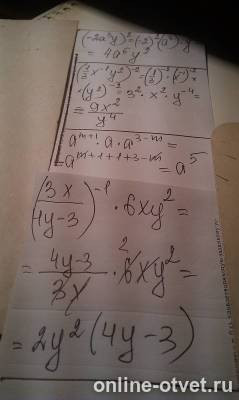 (-2a³y)²=(-2)²(a³)²y²
= 4a⁶y²
(1/3 x⁻¹y²)⁻²=(1/3)⁻²·(x⁻¹)⁻²·
·(y²)⁻²=3²·x²·y⁻⁴=
= 9x²/y⁴
aᵐ⁺¹·a·a³⁻ᵐ=
=aᵐ⁺¹⁺¹⁺³⁻ᵐ=a⁵
(3x/4y-3)⁻¹·6xy²=
= 4y-3/3x · 6xy² =
2
= 2y²(4y-3)
online-otvet.ru